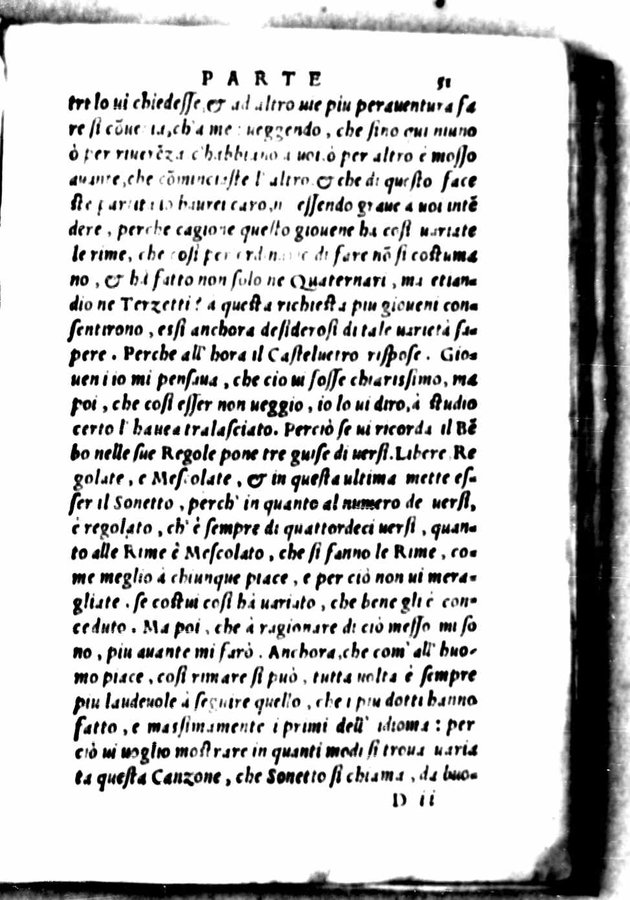 PARTE 51
tre lo ui chiedesse, & ad altro uie piu perauentura fa
re si cōue ch'a me ueggendo, che sino qui niuno
ò per riuerēza c'habbiano a uoi, ò per altro è mosso
auante, che cōminciaste l'altro, & che di questo face
ste haurei caro, essendo graue a uoi intē
dere, perche cagione questo giouene ha cosi uariate
le rime, che cosi per di fare nō si costuma
no, & hà fatto non solo ne Quaternari, ma etian-
dio ne Terzetti? a questa richiesta piu gioueni con-
sentirono, essi anchora desiderosi di tale uarietà sa-
pere. Perche all'hora il Casteluetro rispose. Gio-
ueni io mi pensaua, che ciò ui fosse chiarissimo, ma
poi, che cosi esser non ueggio, io lo ui dirò, à studio
certo l'hauea tralasciato. Perciò se ui ricorda il Bē
bo nelle sue Regole pone tre guise di uersi. Libere Re
golate, e Mescolate, & in questa ultima mette es-
ser il Sonetto, perch'in quanto al numero de uersi,
è regolato, ch'è sempre di quattordeci uersi, quan-
to alle Rime è Mescolato, che si fanno le Rime, co-
me meglio à chiunque piace, e per ciò non ui mera-
gliate, se costui cosi hà uariato, che bene gli è con-
ceduto. Ma poi, che à ragionare di ciò messo mi so
no, piu auante mi farò. Anchora, che com'all'huo-
mo piace, cosi rimare si può, tutta uolta è sempre
piu laudeuole à seguire quello, che i piu dotti hanno
fatto, e massimamente i primi dell'idioma: per
ciò ui uoglio mostrare in quanti modi si troua uaria
ta questa Canzone, che Sonetto si chiama, da buo-
D ii